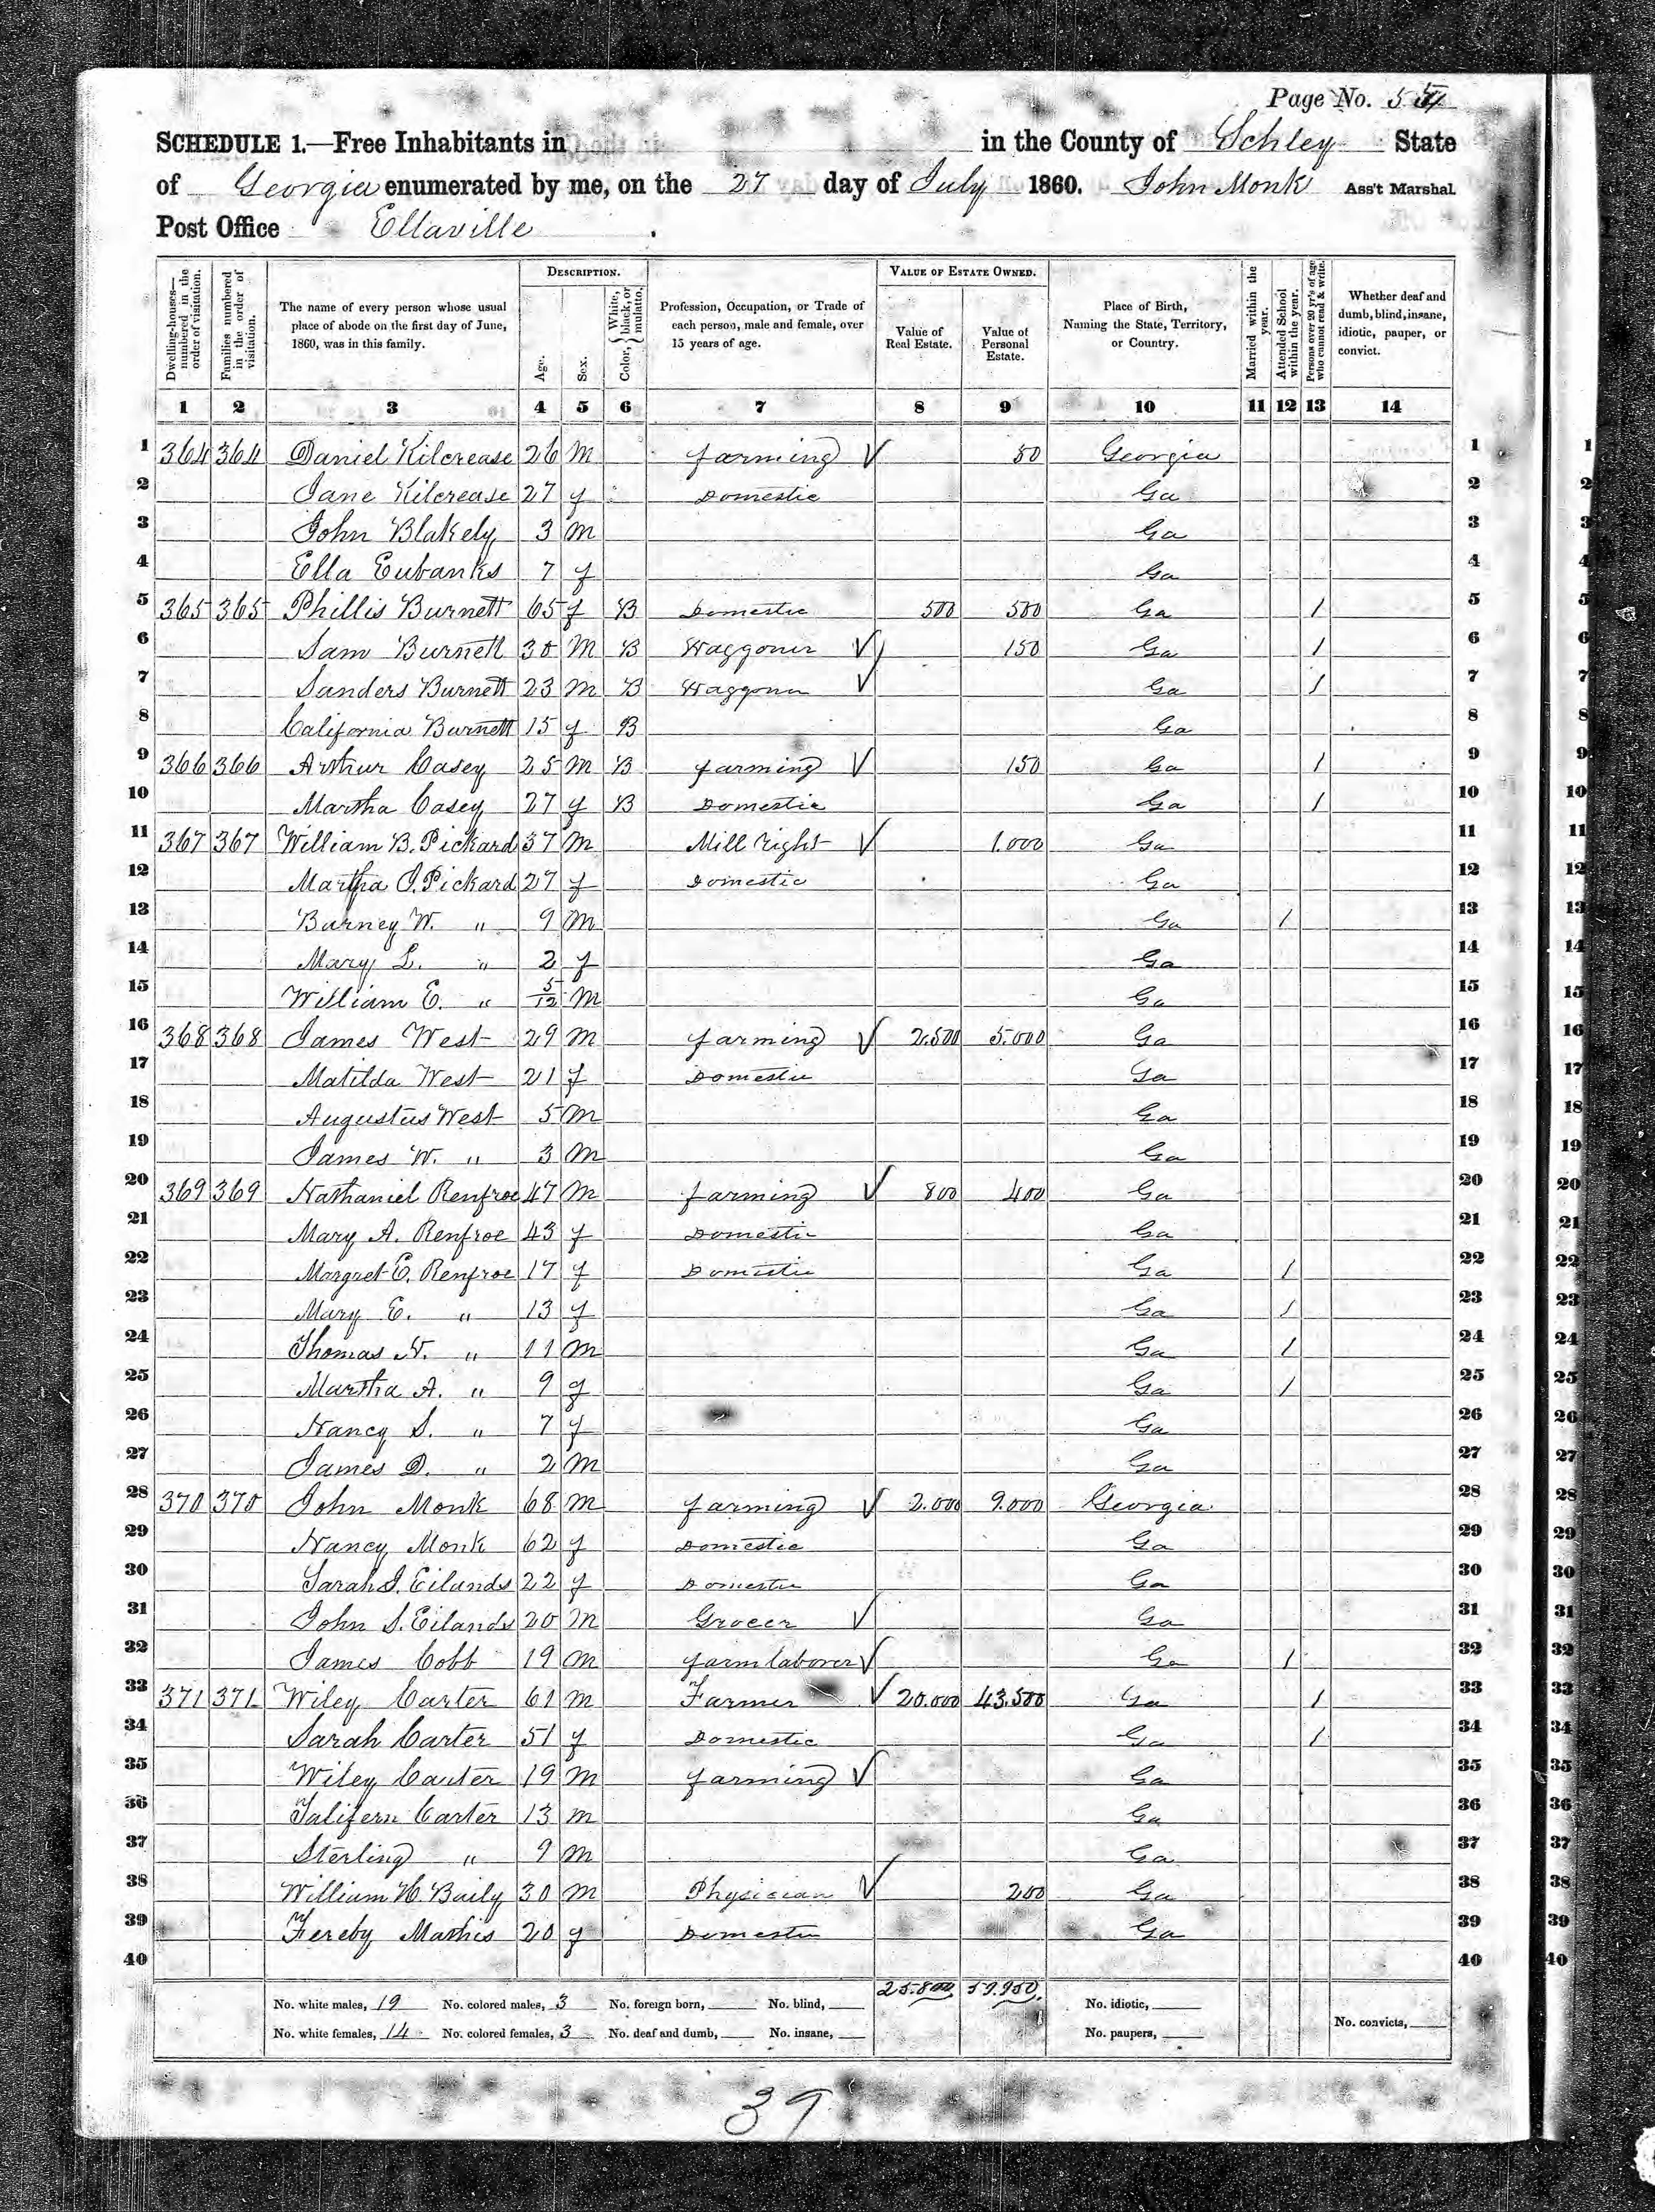 Page No. 54
SCHEDULE 1.—Free Inhabitants in in the County of Schley State
of Georgia enumerated by me, on the 27 day of July 1860. John Monk Ass't Marshal.
Post Office Ellaville
Dwelling-houses—numbered in the order of visitation.
Families numbered in the order of visitation.
The name of every person whose usual place of abode on the first day of June, 1860, was in this family.
DESCRIPTION.
Age.
Sex.
Color, { White, black, or mulatto.
Profession, Occupation, or Trade of each person, male and female, over 15 years of age.
VALUE OF ESTATE OWNED.
Value of Real Estate.
Value of Personal Estate.
Place of Birth, Naming the State, Territory, or Country.
Married within the year.
Attended School within the year.
Persons over 20 yr's of age who cannot read & write.
Whether deaf and dumb, blind, insane, idiotic, pauper, or convict.
1 2 3 4 5 6 7 8 9 10 11 12 13 14
1 364 364 Daniel Kilcrease 26 m farming √ 50 Georgia 1
2 Jane Kilcrease 27 f Domestic Ga 2
3 John Blakely 3 m Ga 3
4 Ella Eubanks 7 f Ga 4
5 365 365 Phillis Burnett 65 f B Domestic 500 500 Ga / 5
6 Sam Burnett 30 M B Waggoner √ 150 Ga / 6
7 Sanders Burnett 23 m B Waggoner √ Ga / 7
8 California Burnett 15 f B Ga 8
9 366 366 Arthur Casey 25 M B farming √ 150 Ga / 9
10 Martha Casey 27 f B Domestic Ga / 10
11 367 367 William B. Pickard 37 m Mill right √ 1.000 Ga 11
12 Martha J. Pickard 27 f Domestic Ga 12
13 Burney W. " 9 m Ga / 13
14 Mary L. " 2 f Ga 14
15 William E. " 5/12 m Ga 15
16 368 368 James West 29 m farming √ 2.500 5.000 Ga 16
17 Matilda West 21 f Domestic Ga 17
18 Augustus West 5 m Ga 18
19 James W. " 3 m Ga 19
20 369 369 Nathaniel Renfroe 47 m farming √ 800 400 Ga 20
21 Mary A. Renfroe 43 f Domestic Ga 21
22 Margret E. Renfroe 17 f Domestic Ga / 22
23 Mary E. " 13 f Ga / 23
24 Thomas N. " 11 m Ga / 24
25 Martha A. " 9 f Ga / 25
26 Nancy S. " 7 f Ga 26
27 James D. " 2 m Ga 27
28 370 370 John Monk 68 m farming √ 2.000 9.000 Georgia 28
29 Nancy Monk 62 f Domestic Ga 29
30 Sarah J. Eilands 22 f Domestic Ga 30
31 John S. Eilands 20 m Grocer √ Ga 31
32 James Cobb 19 m farm laborer √ Ga / 32
33 371 371 Wiley Carter 61 m Farmer √ 20.000 43.500 Ga / 33
34 Sarah Carter 51 f Domestic Ga / 34
35 Wiley Carter 19 m farming √ Ga 35
36 Talifern Carter 13 m Ga 36
37 Sterling " 9 m Ga 37
38 William H. Baily 30 m Physician √ 200 Ga 38
39 Fereby Mathis 20 f Domestic Ga 39
40 40
25.800 59.950
No. white males, 19 No. colored males, 3 No. foreign born, No. blind, No. idiotic,
No. white females, 14 No. colored females, 3 No. deaf and dumb, No. insane, No. paupers, No. convicts,
39